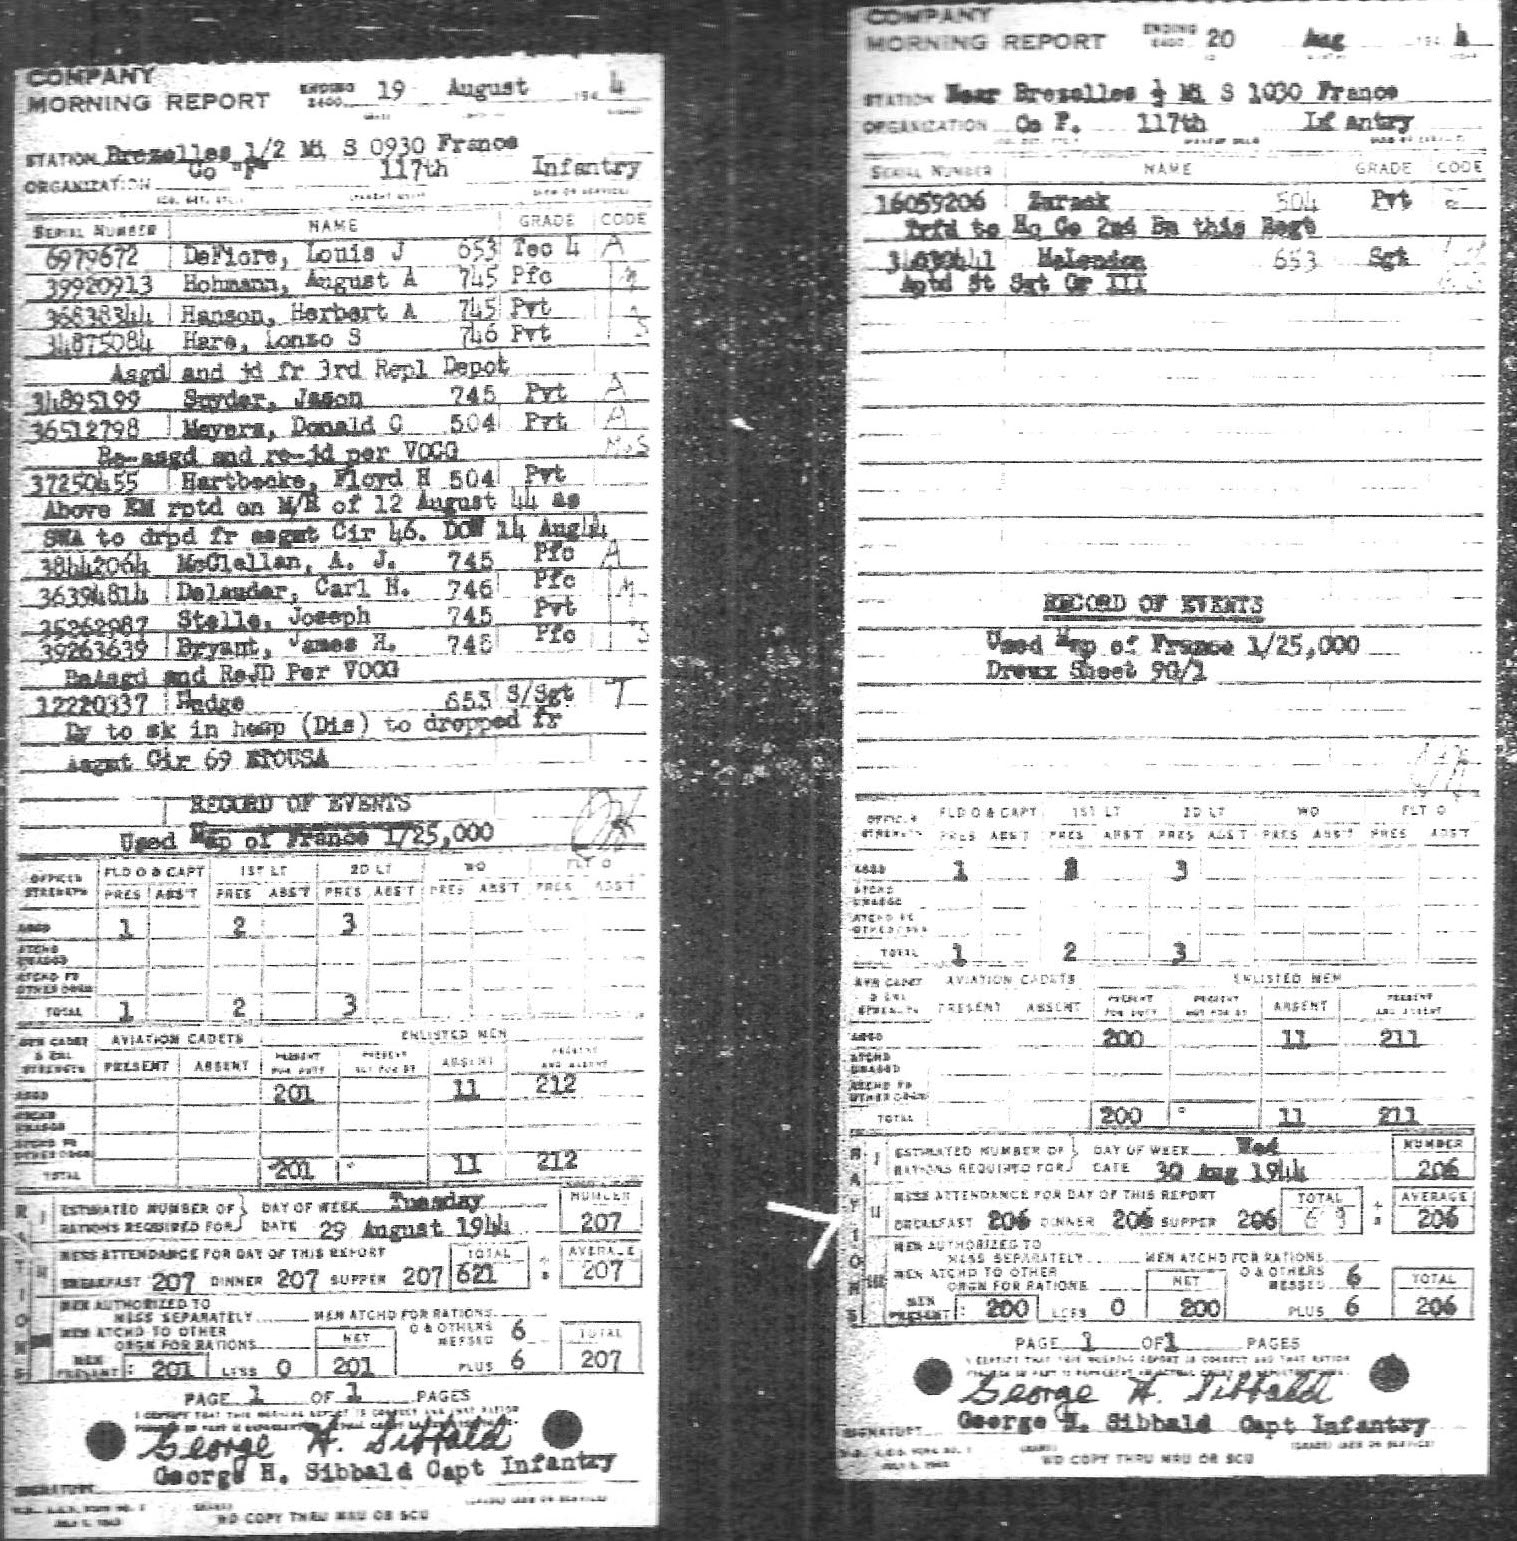 COMPANY
MORNING REPORT ENDING 2400 19 August 194 4
STATION Brezelles 1/2 Mi S 0930 France
ORGANIZATION Co "F" 117th Infantry
SERIAL NUMBER NAME GRADE CODE
6979672 DeFiore, Louis J 653 Tec 4 A
39920913 Hohmann, August A 745 Pfc
36838344 Hanson, Herbert A 745 Pvt
34875084 Hare, Lonzo S 746 Pvt
Asgd and jd fr 3rd Repl Depot
34895199 Snyder, Jason 745 Pvt A
36512798 Meyers, Donald C 504 Pvt A
Re-asgd and re-jd per VOCG
37250455 Hartbecke, Floyd H 504 Pvt
Above EM rptd on M/R of 12 August 44 as
SWA to drpd fr asgmt Cir 46. DOW 14 Aug 44
38442064 McClellan, A. J. 745 Pfc A
36394814 Delauder, Carl H. 746 Pfc
35262987 Stelle, Joseph 745 Pvt
39263639 Bryant, James H. 745 Pfc
ReAsgd and ReJD Per VOCG
12220337 Hudge 653 S/Sgt T
Dy to sk in hosp (Dis) to dropped fr
Asgmt Cir 69 ETOUSA
RECORD OF EVENTS
Used Map of France 1/25,000
OFFICER STRENGTH FLD O & CAPT 1ST LT 2D LT WO FLT O
PRES ABS'T PRES ABS'T PRES ABS'T PRES ABS'T PRES ABS'T
ASGD 1 2 3
ATCHD UNASGD
ATCHD FR OTHER ORGN
TOTAL 1 2 3
AVN CADET & ENL STRENGTH AVIATION CADETS ENLISTED MEN
PRESENT ABSENT PRESENT FOR DUTY PRESENT NOT FOR DY ABSENT PRESENT AND ABSENT
ASGD 201 11 212
ATCHD UNASGD
ATCHD FR OTHER ORGN
TOTAL 201 11 212
RATIONS
I ESTIMATED NUMBER OF RATIONS REQUIRED FOR DAY OF WEEK Tuesday NUMBER
DATE 29 August 1944 207
II MESS ATTENDANCE FOR DAY OF THIS REPORT TOTAL AVERAGE
BREAKFAST 207 DINNER 207 SUPPER 207 621 ÷ 3 = 207
MEN AUTHORIZED TO MESS SEPARATELY MEN ATCHD FOR RATIONS
MEN ATCHD TO OTHER ORGN FOR RATIONS NET O & OTHERS MESSED 6 TOTAL
MEN PRESENT: 201 LESS 0 201 PLUS 6 207
PAGE 1 OF 1 PAGES
I CERTIFY THAT THIS MORNING REPORT IS CORRECT AND THAT RATION
George H. Sibbald
George H. Sibbald Capt Infantry
SIGNATURE
WD COPY THRU MRU OR SCU
COMPANY
MORNING REPORT ENDING 2400 20 Aug 194 4
STATION Near Brezelles ½ Mi S 1030 France
ORGANIZATION Co F. 117th Infantry
SERIAL NUMBER NAME GRADE CODE
16059206 Zurack 504 Pvt
Trfd to Hq Co 2nd Bn this Regt
McLendon 653 Sgt
Aptd St Sgt Gr III
RECORD OF EVENTS
Used Map of France 1/25,000
Dreux Sheet 90/1
OFFICER STRENGTH FLD O & CAPT 1ST LT 2D LT WO FLT O
PRES ABS'T PRES ABS'T PRES ABS'T PRES ABS'T PRES ABS'T
ASGD 1 2 3
ATCHD UNASGD
ATCHD FR OTHER ORGN
TOTAL 1 2 3
AVN CADET & ENL STRENGTH AVIATION CADETS ENLISTED MEN
PRESENT ABSENT PRESENT FOR DUTY PRESENT NOT FOR DY ABSENT PRESENT AND ABSENT
ASGD 200 11 211
ATCHD UNASGD
ATCHD FR OTHER ORGN
TOTAL 200 11 211
RATIONS
I ESTIMATED NUMBER OF RATIONS REQUIRED FOR DAY OF WEEK Wed NUMBER
DATE 30 Aug 1944 206
II MESS ATTENDANCE FOR DAY OF THIS REPORT TOTAL AVERAGE
BREAKFAST 206 DINNER 206 SUPPER 206 206
MEN AUTHORIZED TO MESS SEPARATELY MEN ATCHD FOR RATIONS
III MEN ATCHD TO OTHER ORGN FOR RATIONS NET O & OTHERS MESSED 6 TOTAL
MEN PRESENT: 200 LESS 0 200 PLUS 6 206
PAGE 1 OF 1 PAGES
I CERTIFY THAT THIS MORNING REPORT IS CORRECT AND THAT RATION
George H. Sibbald
George H. Sibbald Capt Infantry
SIGNATURE
WD COPY THRU MRU OR SCU